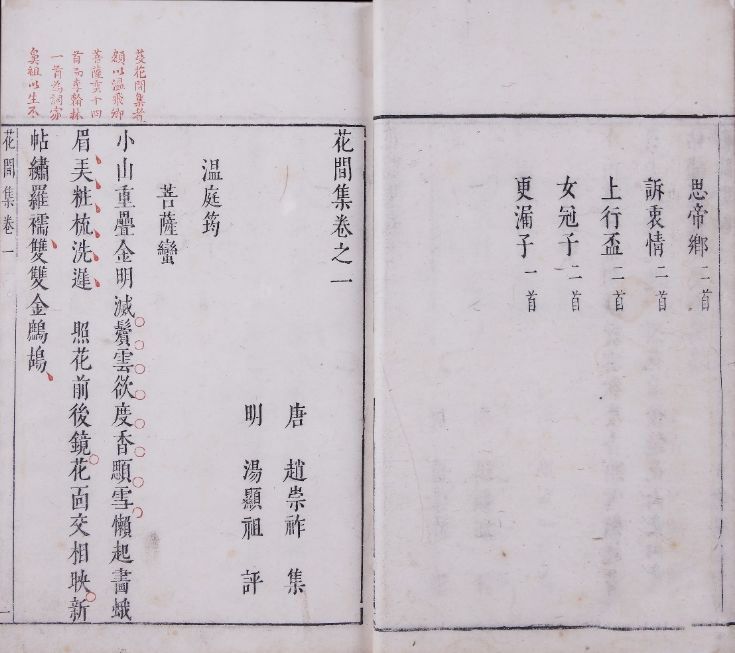 思帝鄉 二首
訴衷情 二首
上行盃 二首
女冠子 二首
更漏子 一首
花間集卷之一
唐 趙崇祚 集
明 湯顯祖 評
温庭筠
菩薩蠻
小山重疊金明滅鬢雲欲度香顋雪懶起畵蛾
眉弄粧梳洗遲 照花前後鏡花面交相映新
帖繡羅襦雙雙金鷓鴣
芟花間集者
額以温飛卿
菩薩蠻十四
首而李翰林
一首為詞家
鼻祖以生不
花間集卷一
一